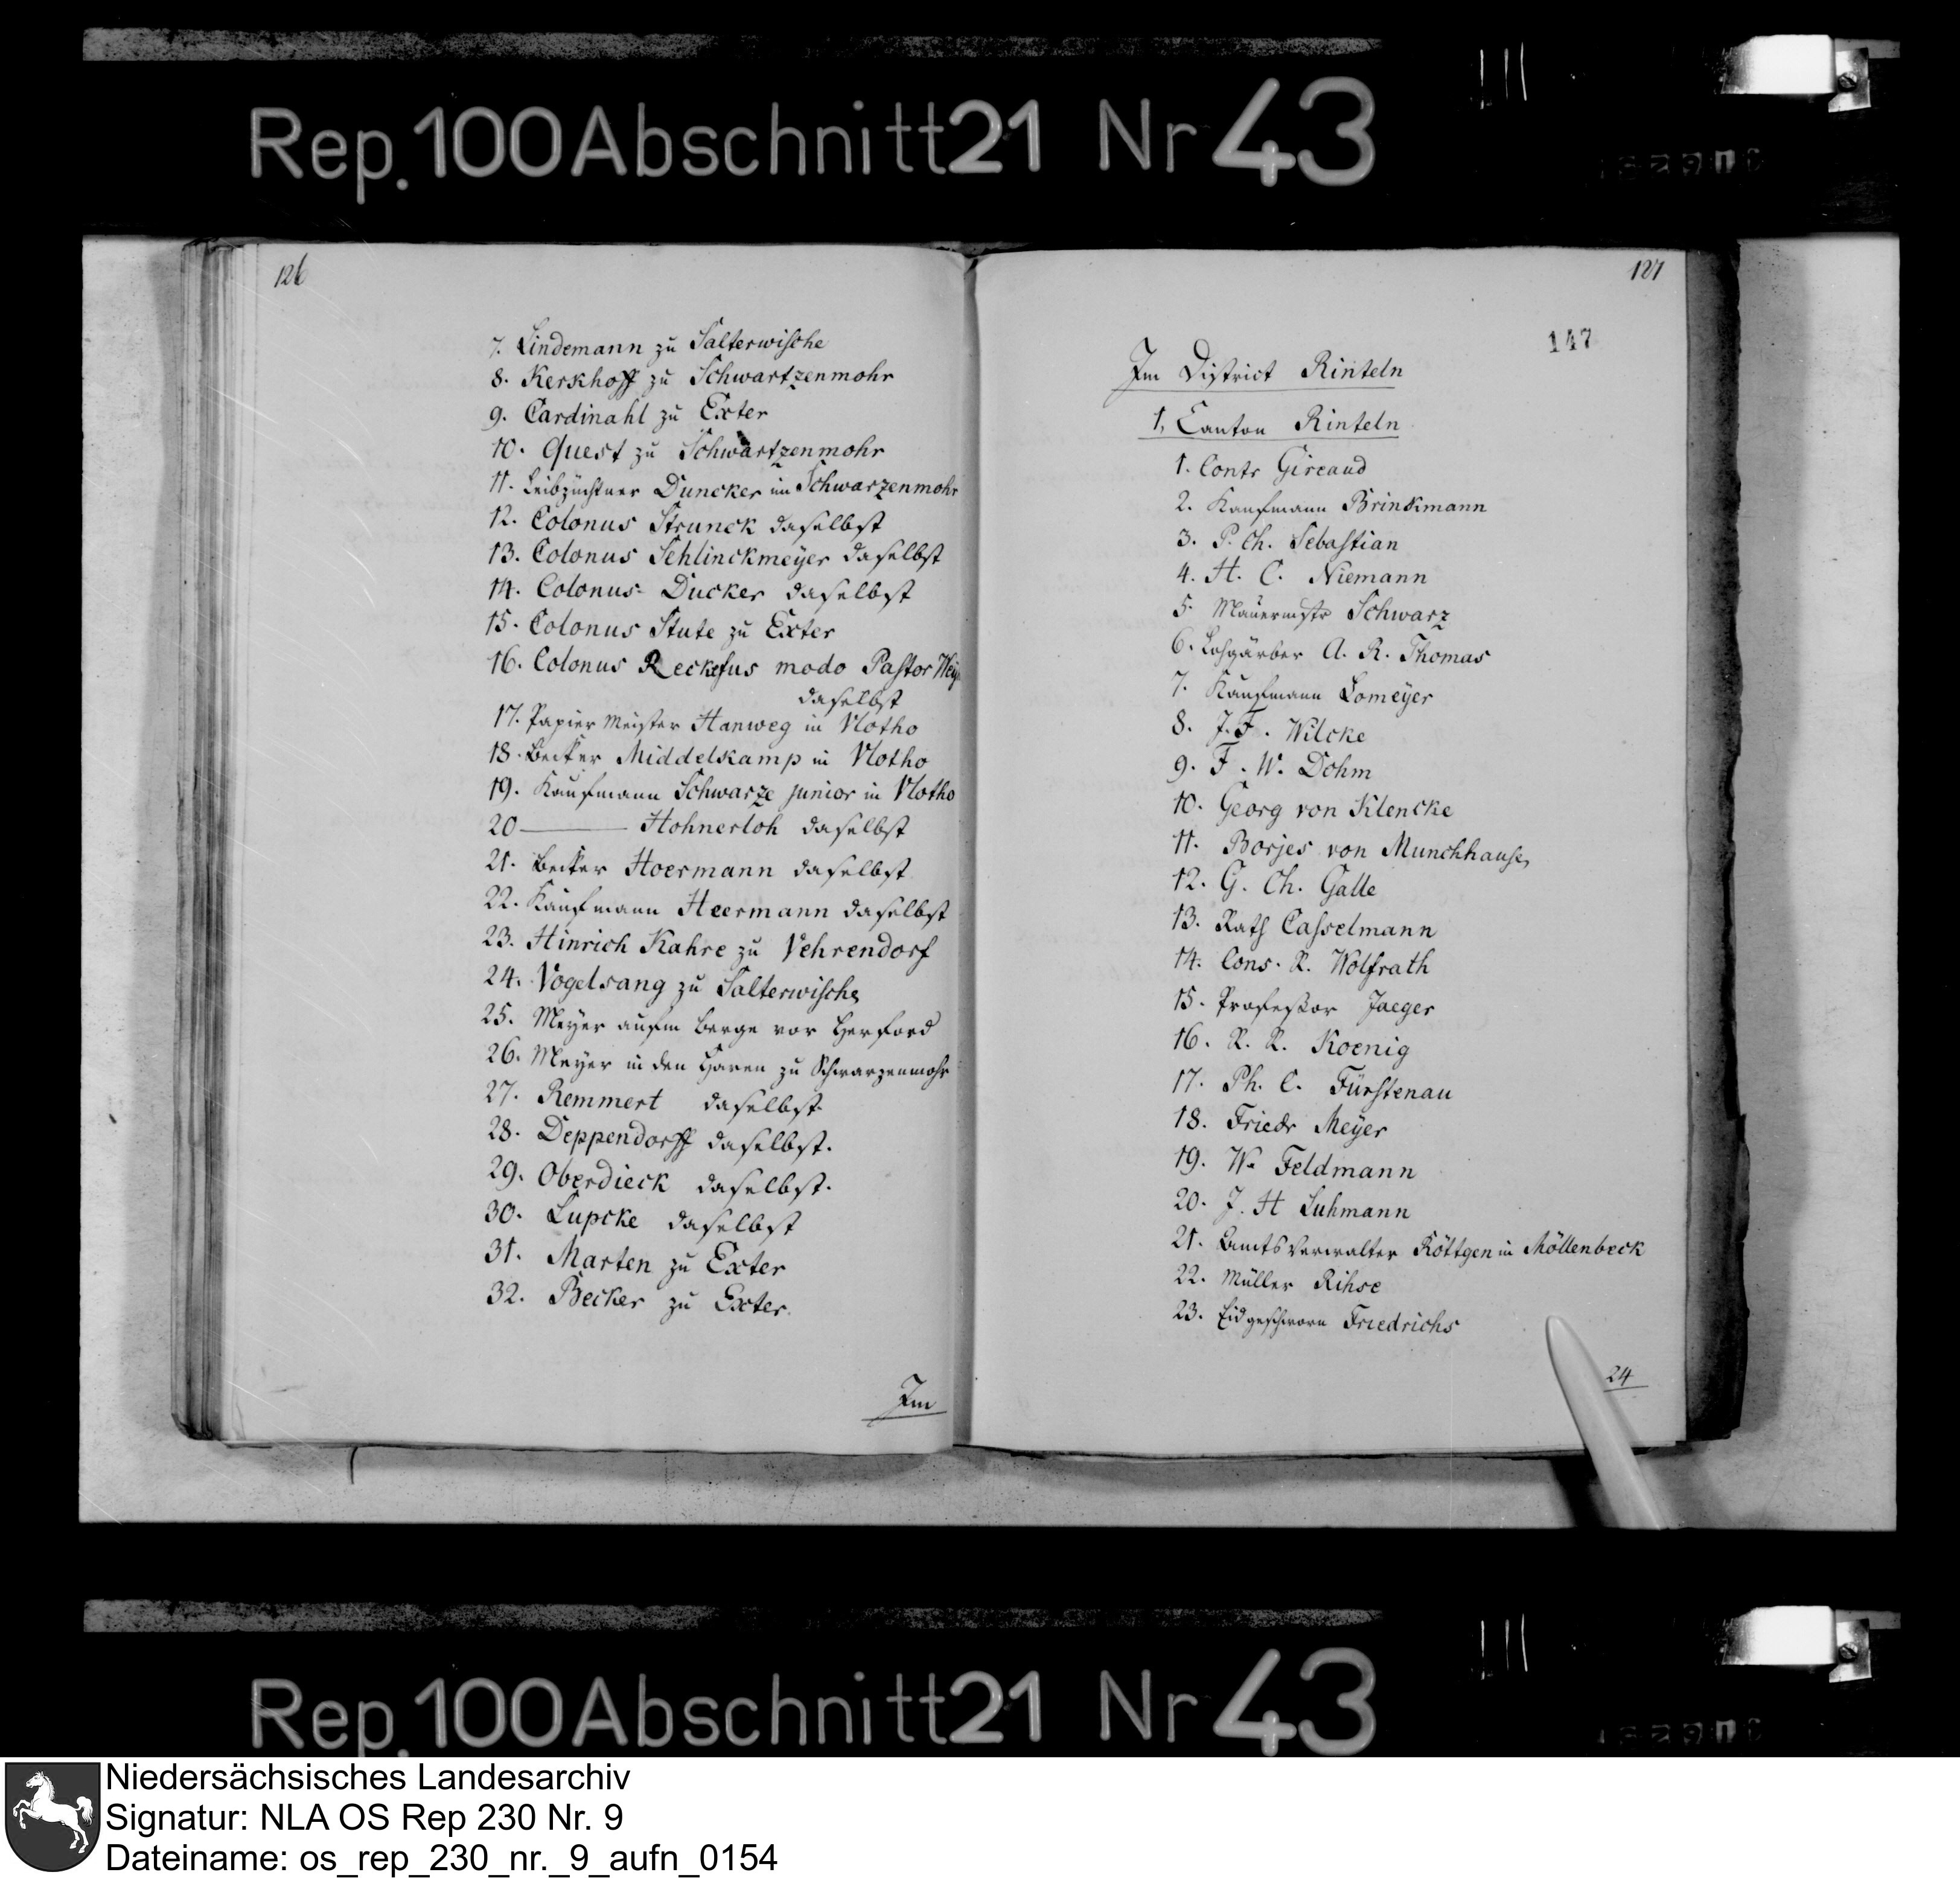 Rep.100Abschnitt21 Nr 43
126
7. Lindemann zu Salterwische
8. Kerkhoff zu Schwartzenmohr
9. Cardinahl zu Exter
10. Quest zu Schwartzenmohr
11. Leibzüchtner Duncker im Schwarzenmohr
12. Colonus Strunck daselbst
13. Colonus Schlinckmeyer daselbst
14. Colonus Ducker daselbst
15. Colonus Stute zu Exter
16. Colonus Reckefus modo Pastor
daselbst
17. Papier Meister Hanweg in Vlotho
18. Becker Middelkamp in Vlotho
19. Kaufmann Schwarze junior in Vlotho
20 ——— Hohnerloh daselbst
21. Becker Hoermann daselbst
22. Kaufmann Heermann daselbst
23. Hinrich Kahre zu Vehrendorf
24. Vogelsang zu Salterwische
25. Meyer aufm Berge vor Herford
26. Meyer in den Haren zu Schwarzenmohr
27. Remmert daselbst
28. Deppendorff daselbst.
29. Oberdieck daselbst.
30. Lupcke daselbst
31. Marten zu Exter
32. Becker zu Exter.
Im
127
147
Im District Rinteln
1. Canton Rinteln
1. Contr Gireaud
2. Kaufmann Brinkmann
3. P. Ch. Sebastian
4. H. C. Niemann
5. Mauermstr Schwarz
6. Lohgärber A. R. Thomas
7. Kaufmann Lomeyer
8. J. F. Wilcke
9. F. W. Dohm
10. Georg von Klencke
11. Borjes von Munchhausen
12. G. Ch. Galle
13. Rath Casselmann
14. Cons. R. Wolfrath
15. Professor Jaeger
16. R. R. Koenig
17. Ph. C. Fürstenau
18. Friedr Meyer
19. W. Feldmann
20. J. H Luhmann
21. Amtsverwalter Röttgen in Möllenbeck
22. Müller Rihse
23. Eidgeschworn Friedrichs
24
Rep.100Abschnitt21 Nr 43
Niedersächsisches Landesarchiv
Signatur: NLA OS Rep 230 Nr. 9
Dateiname: os_rep_230_nr._9_aufn_0154